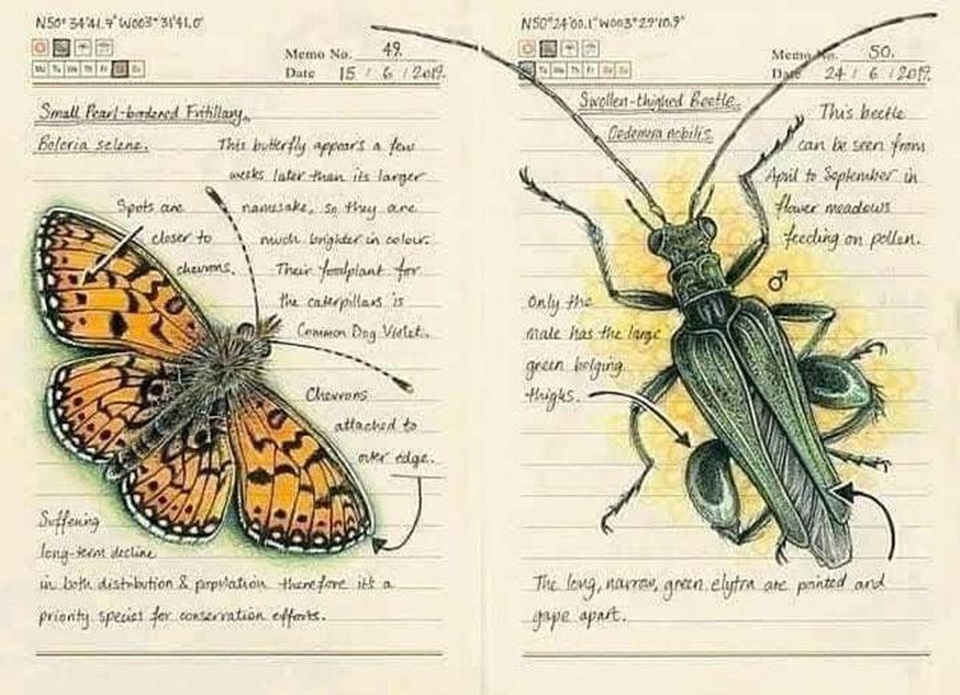 N50°34'41.9"W003°31'41.0"
Memo No. 49.
Mo Tu We Th Fr Su
Date 15 / 6 / 2019.
Small Pearl-bordered Fritillary.
Boloria selene.
This butterfly appears a few
weeks later than its larger
namesake, so they are
much brighter in colour.
Their foodplant for
the caterpillars is
Common Dog Violet.
Spots are
closer to
chevrons.
Chevrons
attached to
outer edge.
Suffering
long-term decline
in both distribution & population therefore it's a
priority species for conservation efforts.
N50°24'00.1"W003°29'10.9"
Memo No. 50.
Tu We Th Fr Sa Su
Date 24 / 6 / 2019.
Swollen-thighed Beetle.
Oedemera nobilis.
This beetle
can be seen from
April to September in
flower meadows
feeding on pollen.
♂
Only the
male has the large
green bulging
thighs.
The long, narrow, green elytra are pointed and
gape apart.